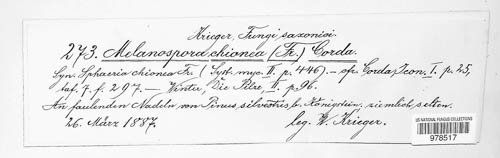 Krieger, Fungi saxonici.
273. Melanospora chionea (Fr.) Corda.
Syn. Sphaeria chionea Fr. (Syst. myc. II. p. 446). — cfr. Corda, Icon. I. p. 25,
taf. 7. f. 297. — Winter, Die Pilze, II. p. 96.
An faulenden Nadeln von Pinus silvestris b. Königstein, ziemlich selten.
26. März 1887.
leg. W. Krieger.
US NATIONAL FUNGUS COLLECTIONS
978517